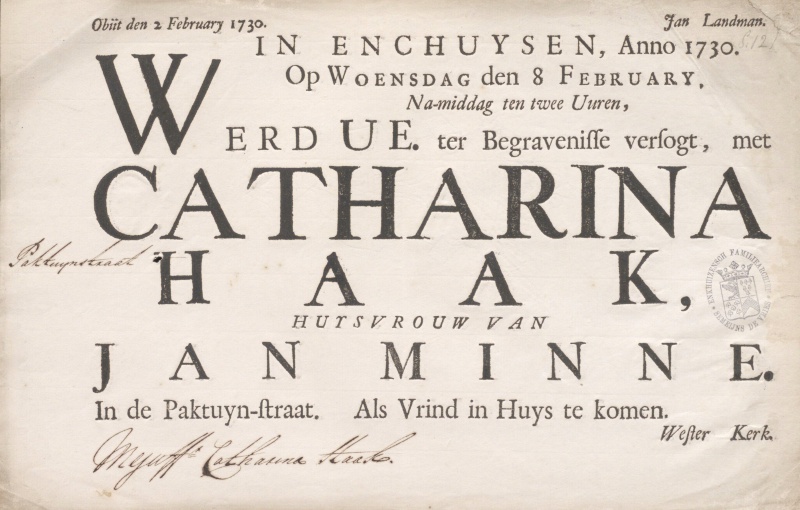 Obiit den 2 February 1730.
Jan Landman.
IN ENCHUYSEN, Anno 1730.
Op WOENSDAG den 8 FEBRUARY,
Na-middag ten twee Uuren,
WERD UE. ter Begravenisse versogt, met
CATHARINA
Paktuynstraat
HAAK,
HUYSVROUW VAN
JAN MINNE.
In de Paktuyn-straat. Als Vrind in Huys te komen.
Wester Kerk.
Mejuffr. Catharina Haak.